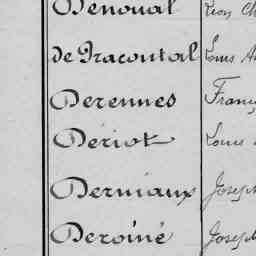 Denoual Léon
de Gracontal Louis
Derennes Franç
Deriot Louis
Derniaux Joseph
Deroiné Joseph